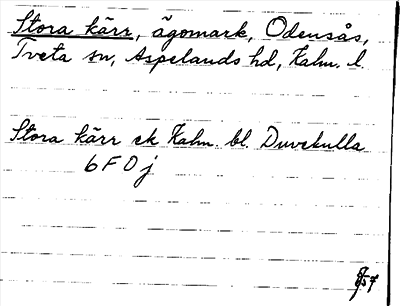 Stora kärr, ägomark, Odensås,
Tveta sn, Aspelands hd, Kalm. l.
Stora kärr ek Kalm. bl. Duvekulla
6F0j